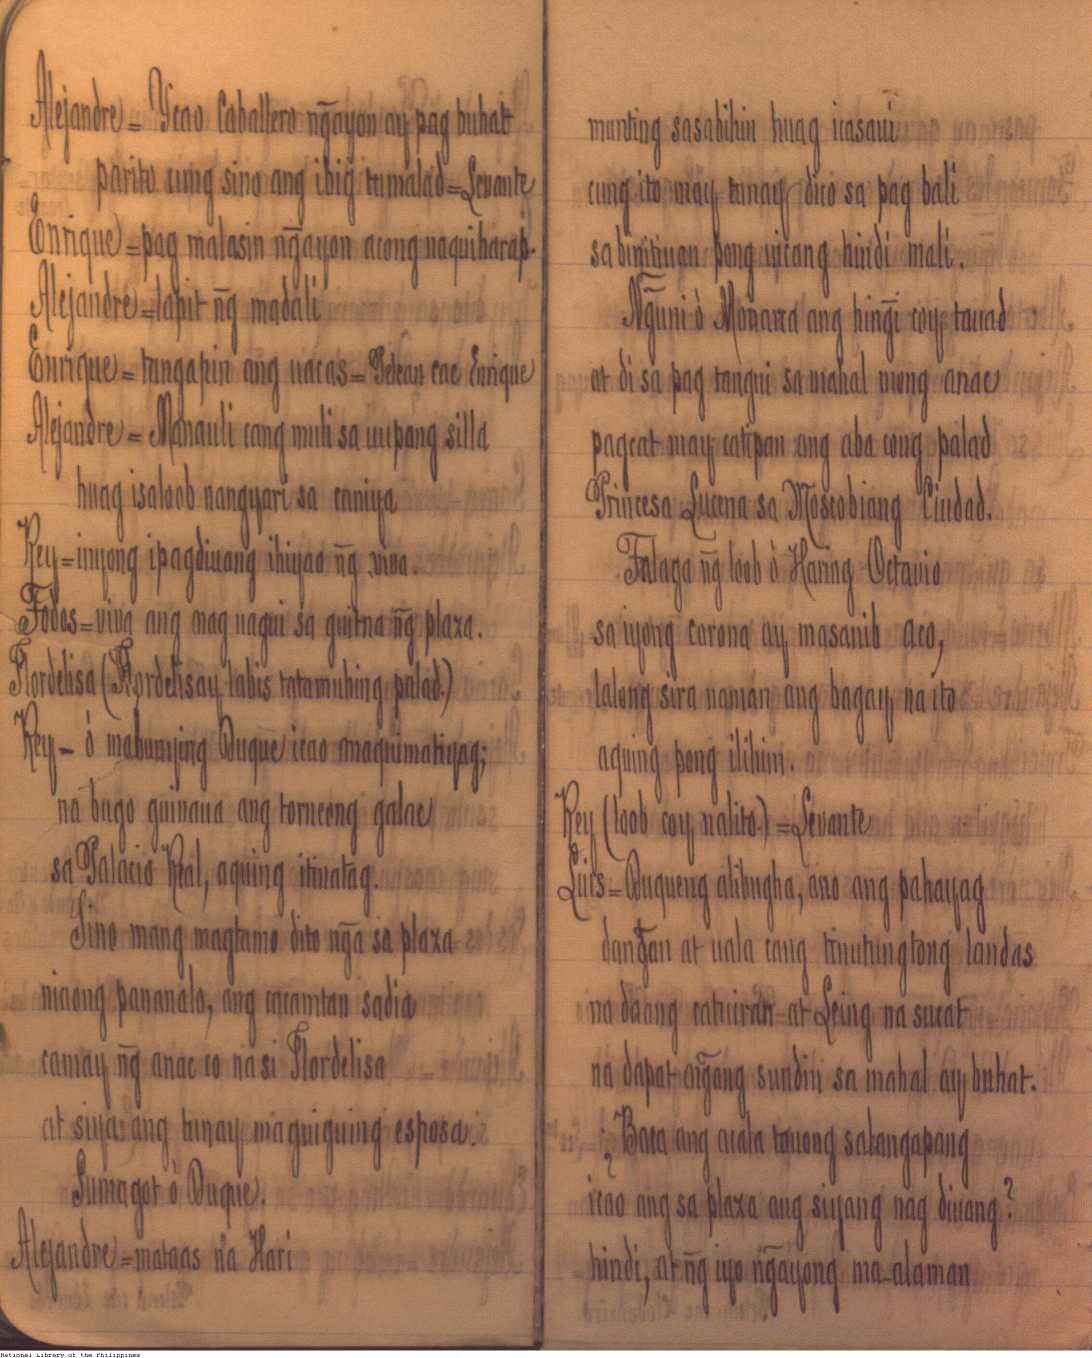 Alejandre = Ycao Caballero ñg̃ayon ay pag buhat
parito cung sino ang ibig tumalad = Levante
Enrique = pag malasin ñg̃ayon acong naquiharap.
Alejandre = lapit ñg̃ madali
Enrique = tangapin ang uacas = Pelean cae Enrique
Alejandre = Manauli cang muli sa uupang silla
huag isaloob nangyari sa caniya
Rey = inyong ipagdiuang ihiyao ñg̃ viva.
Todos = viva ang mag uagui sa guitna ñg̃ plaza.
Flordelisa (Flordelisay labis tatamuhing palad.)
Rey - ó mabunying Duque icao maquimatiyag;
na bago guinaua ang torneong galac
sa Palacio Real, aquing itinatag.
Sino mang magtamo dito ñg̃a sa plaza
niaong pananalo, ang cacamtan sadia
camay ñg̃ anac co na si Flordelisa
at siya ang tunay maguiguing esposa.
Sumagot ó Duque.
Alejandre = mataas na Hari
munting sasabihin huag icasaui
cung ito may tunay dico sa pag bali
sa binitiuan pong uicang hindi mali.
Ñg̃uni ó Monarca ang hing̃i coy tauad
at di sa pag tangui sa mahal niong anac
pagcat may catipan ang aba cong palad
Princesa Lucena sa Moscobiang Ciudad.
Talaga ñg̃ loob ó Haring Octavio
sa iyong corona ay masanib aco,
lalong sira naman ang bagay na ito
aquing pong ilihim.
Rey (loob coy nalito.) = Levante
Luis = Duqueng alibugha, ano ang pahayag
dang̃an at uala cang tinutungtong landas
na daang catuiran at Leing na sucat
na dapat mg̃ang sundin sa mahal ay buhat.
¿Baca ang acala tauong salangapang
icao ang sa plaza ang siyang nag diuang?
hindi, at ñg̃ iyo ñg̃ayong ma-alaman
National Library of the Philippines